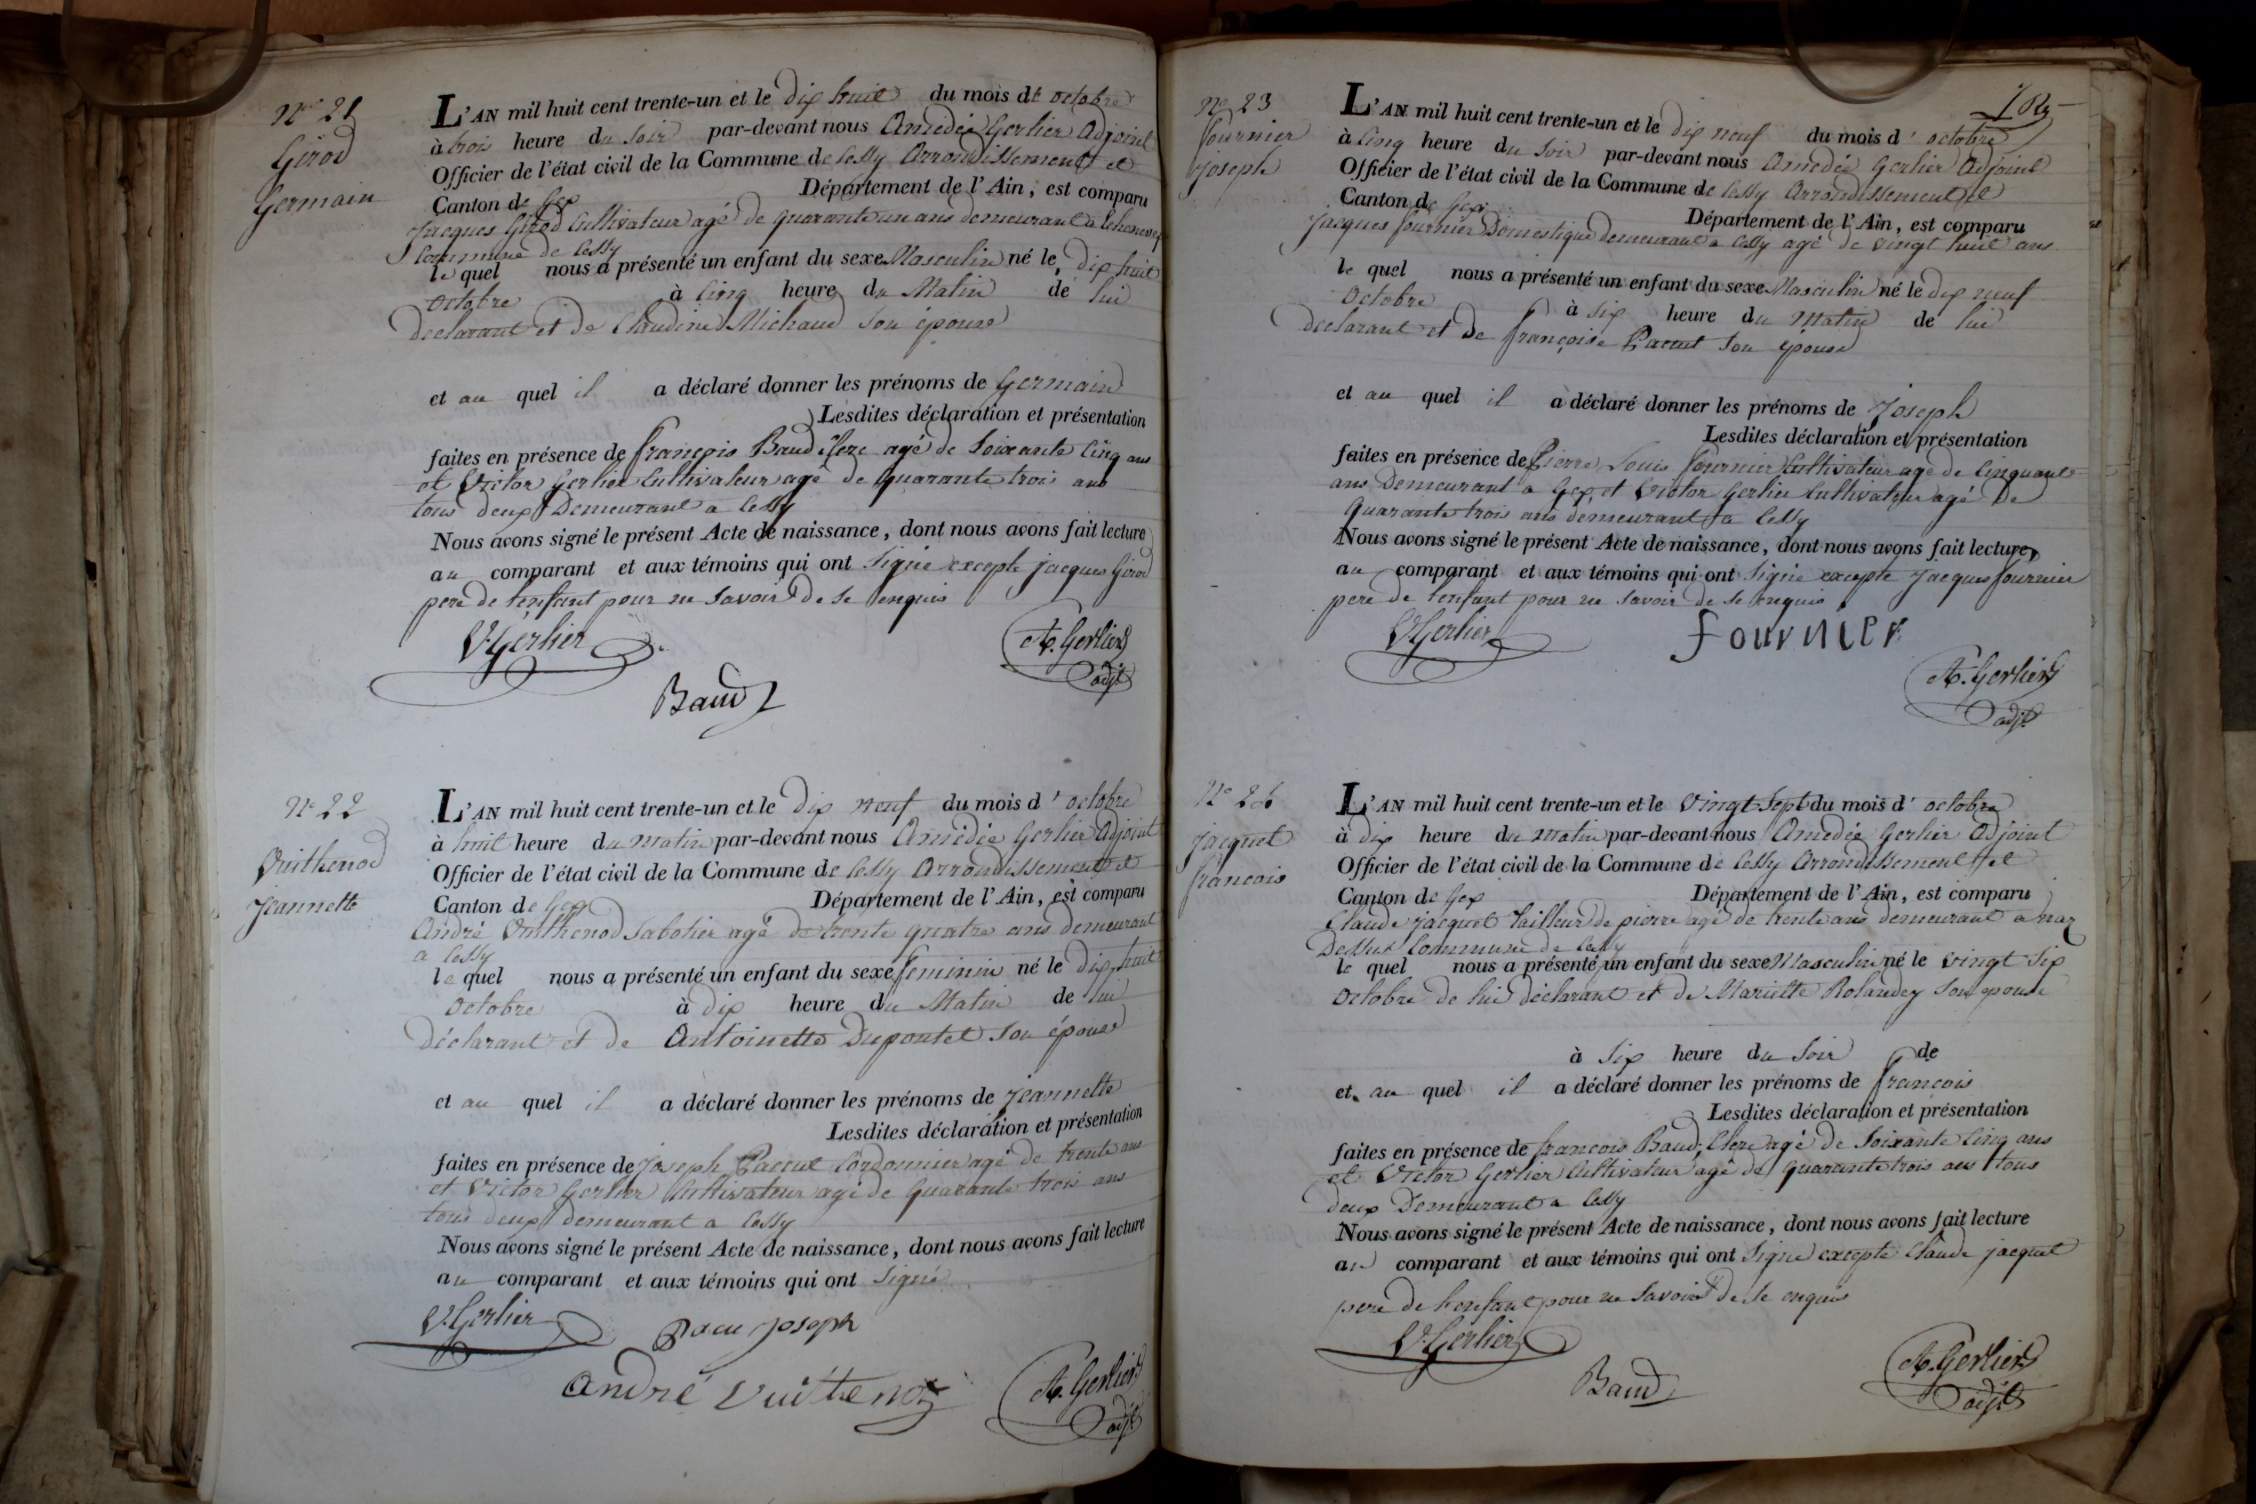 Nº 21
Girod
Germain
L'AN mil huit cent trente-un et le dix huit du mois de octobre
à trois heure du soir par-devant nous Amédée Gerlier Adjoint
Officier de l'état civil de la Commune de Cessy Arrondissement et
Canton de Gex Département de l'Ain, est comparu
Jacques Girod Cultivateur agé de quarante un ans demeurant a
Commune de Cessy
le quel nous a présenté un enfant du sexe Masculin né le dix huit
octobre à cinq heure du Matin de lui
declarant et de Claudine Michaud son épouse
et au quel il a déclaré donner les prénoms de Germain
Lesdites déclaration et présentation
faites en présence de françois Baud Clerc agé de soixante cinq ans
et Victor Gerlier Cultivateur agé de quarante trois ans
tous deux Demeurant a Cessy
Nous avons signé le présent Acte de naissance, dont nous avons fait lecture
au comparant et aux témoins qui ont signé excepté jacques Girod
pere de l'enfant pour ne savoir de ce enquis
V. Gerlier
A. Gerlier
adjt
Baud
Nº 22
Vuithenod
Jeannette
L'AN mil huit cent trente-un et le dix neuf du mois d' octobre
à huit heure du matin par-devant nous Amédée Gerlier Adjoint
Officier de l'état civil de la Commune de Cessy Arrondissement et
Canton de Gex Département de l'Ain, est comparu
André Vuithenod Sabotier agé de trente quatre ans demeurant
a Cessy
le quel nous a présenté un enfant du sexe feminin né le dix huit
octobre à dix heure du Matin de lui
déclarant et de Antoinette Dupontet son épouse
et au quel il a déclaré donner les prénoms de Jeannette
Lesdites déclaration et présentation
faites en présence de Joseph Paccut Cordonnier agé de trente ans
et Victor Gerlier Cultivateur agé de quarante trois ans
tous deux demeurant a Cessy
Nous avons signé le présent Acte de naissance, dont nous avons fait lecture
au comparant et aux témoins qui ont signé
V. Gerlier
Pacu joseph
André Vuithenod
A. Gerlier
adjt
Nº 23
fournier
Joseph
L'AN mil huit cent trente-un et le dix neuf du mois d' octobre
à cinq heure du soir par-devant nous Amédée Gerlier Adjoint
Officier de l'état civil de la Commune de Cessy Arrondissement et
Canton de Gex Département de l'Ain, est comparu
Jacques fournier Domestique demeurant a Cessy agé de vingt huit ans
le quel nous a présenté un enfant du sexe Masculin né le dix neuf
Octobre à six heure du Matin de lui
declarant et de françoise Paccut son épouse
et au quel il a déclaré donner les prénoms de Joseph
Lesdites déclaration et présentation
faites en présence de Pierre Louis fournier Cultivateur agé de cinquante
ans Demeurant a Gex, et Victor Gerlier Cultivateur agé De
quarante trois ans demeurant a Cessy
Nous avons signé le présent Acte de naissance, dont nous avons fait lecture
au comparant et aux témoins qui ont signé excepté Jacques fournier
pere de l'enfant pour ne savoir de ce enquis
V. Gerlier
Fournier
A. Gerlier
adjt
jacquet
francois
L'AN mil huit cent trente-un et le vingt sept du mois d' octobre
à dix heure du matin par-devant nous Amédée Gerlier Adjoint
Officier de l'état civil de la Commune de Cessy Arrondissement et
Canton de Gex Département de l'Ain, est comparu
Claude jacquet Tailleur de pierre agé de trente ans demeurant a naz
Dessus Commune de Cessy
le quel nous a présenté un enfant du sexe Masculin né le vingt six
octobre de lui déclarant et de Mariette Rolandey son épouse
à six heure du soir de
et au quel il a déclaré donner les prénoms de françois
Lesdites déclaration et présentation
faites en présence de francois Baud, Clerc agé de soixante cinq ans
et Victor Gerlier Cultivateur agé de quarante trois ans tous
deux Demeurant a Cessy
Nous avons signé le présent Acte de naissance, dont nous avons fait lecture
au comparant et aux témoins qui ont signé excepté Claude jacquet
pere de l'enfant pour ne savoir de ce enquis
V. Gerlier
Baud
A. Gerlier
adjt